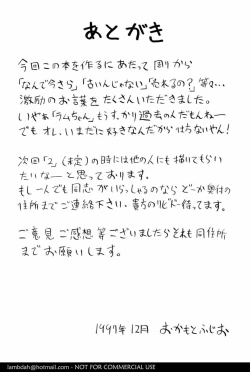 あとがき
今回この本を作るにあたって周りから
「なんで今さら」「古いんじゃない」「売れるの?」等々…
激励のお言葉をたくさんいただきました。
いやぁ「ラムちゃん」もうすっかり過去のんだもんねー
でもオレ、いまだに好きなんだからけちないやん!
次回「2」(未定)の時には他の人にも描いてもらい
たいなーと思っております。
もし一人でも同志がいらっしゃるのなら どーか奥付の
住所までご連絡下さい。貴方のリビドー待ってます。
ご意見ご感想等ございましたらそれも同住所
までお願いします。
1997年12月 おかもとふじお
lambdah@hotmail.com - NOT FOR COMMERCIAL USE